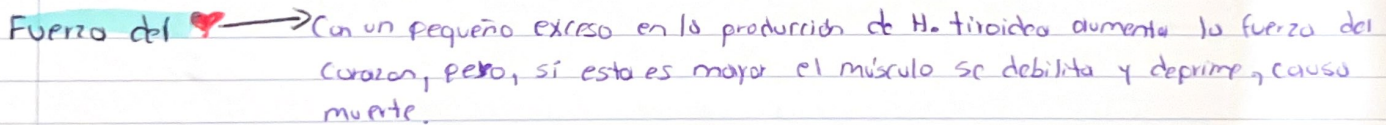 Fuerza del ❤ → Con un pequeño exceso en la producción de H. tiroidea aumenta la fuerza del
corazon, pero, sí esta es mayor el músculo se debilita y deprime, causa
muerte.